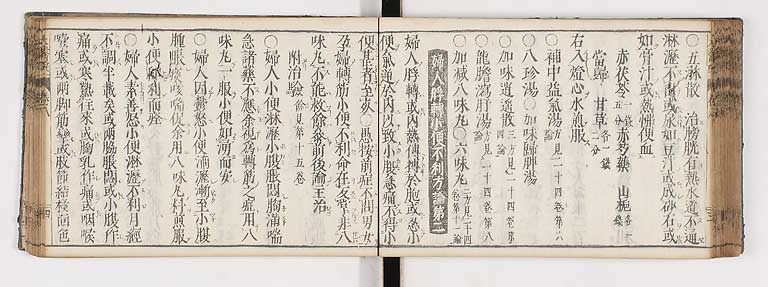 ○五淋散 治膀胱有熱水道不通
淋瀝不出或尿如豆汁或成砂石或
如膏汁或熱怫便血
赤茯苓 赤芍藥 山梔
當歸 甘草
右入燈心水煎服
○補中益氣湯 方見二十四卷第六
○八珍湯 ○加味歸脾湯
○加味逍遙散 方見二十四卷第
○龍膽瀉肝湯 方見二十四卷第八
○加減八味丸○六味丸
婦人胞轉小便不利方論第二
婦人胞轉或內熱傳於胞或忍小
便氣逆於內以致小腹急痛不得小
便甚者至亥○愚按前症不問男女
孕婦轉筋小便不利命在反掌非八
味丸不能救餘參前後論主治
附治驗 餘見第十五卷
○婦人小便淋瀝小腹脹悶胸滿喘
急諸藥不應余視為轉筋之症用八
味丸一服小便如湧而安
○婦人因鬱怒小便滴瀝漸至小腹
腫脹痰咳喘促余用八味丸料煎服
小便即利而痊
○婦人素善怒小便淋瀝不利月經
不調半載矣或兩脇脹悶或小腹作
痛或寒熱往來或胸乳作痛或咽喉
或兩脚筋攣或肢節結核面色